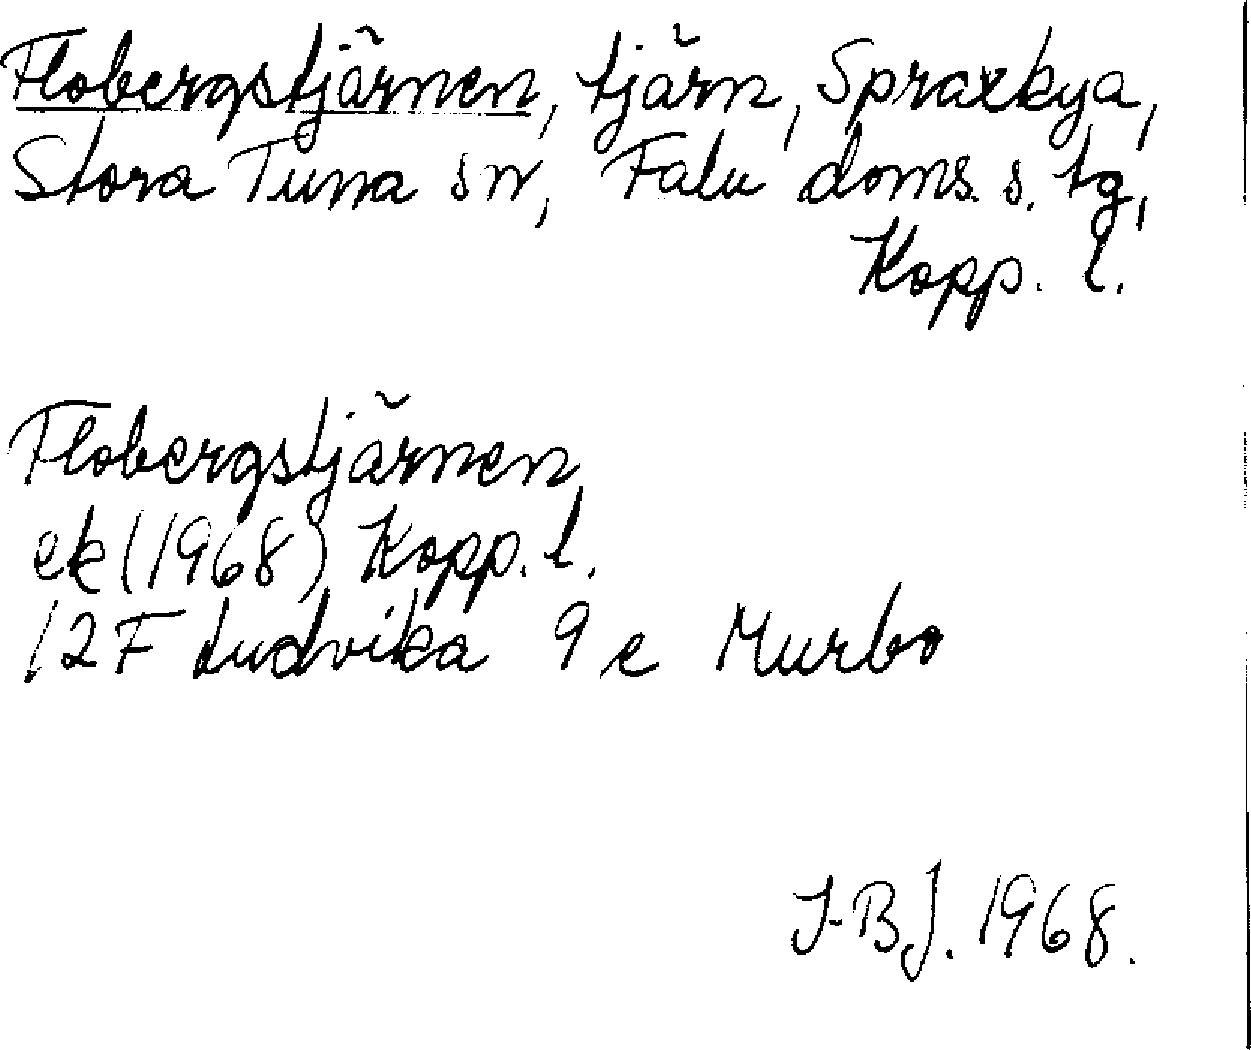 Flobergstjärnen, tjärn, Spraxkya,
Stora Tuna sn, Falu doms. s. tg,
Kopp. l.
Flobergstjärnen,
ek (1968) Kopp. l.
12F Ludvika 9 e Murbo
J-BJ. 1968.